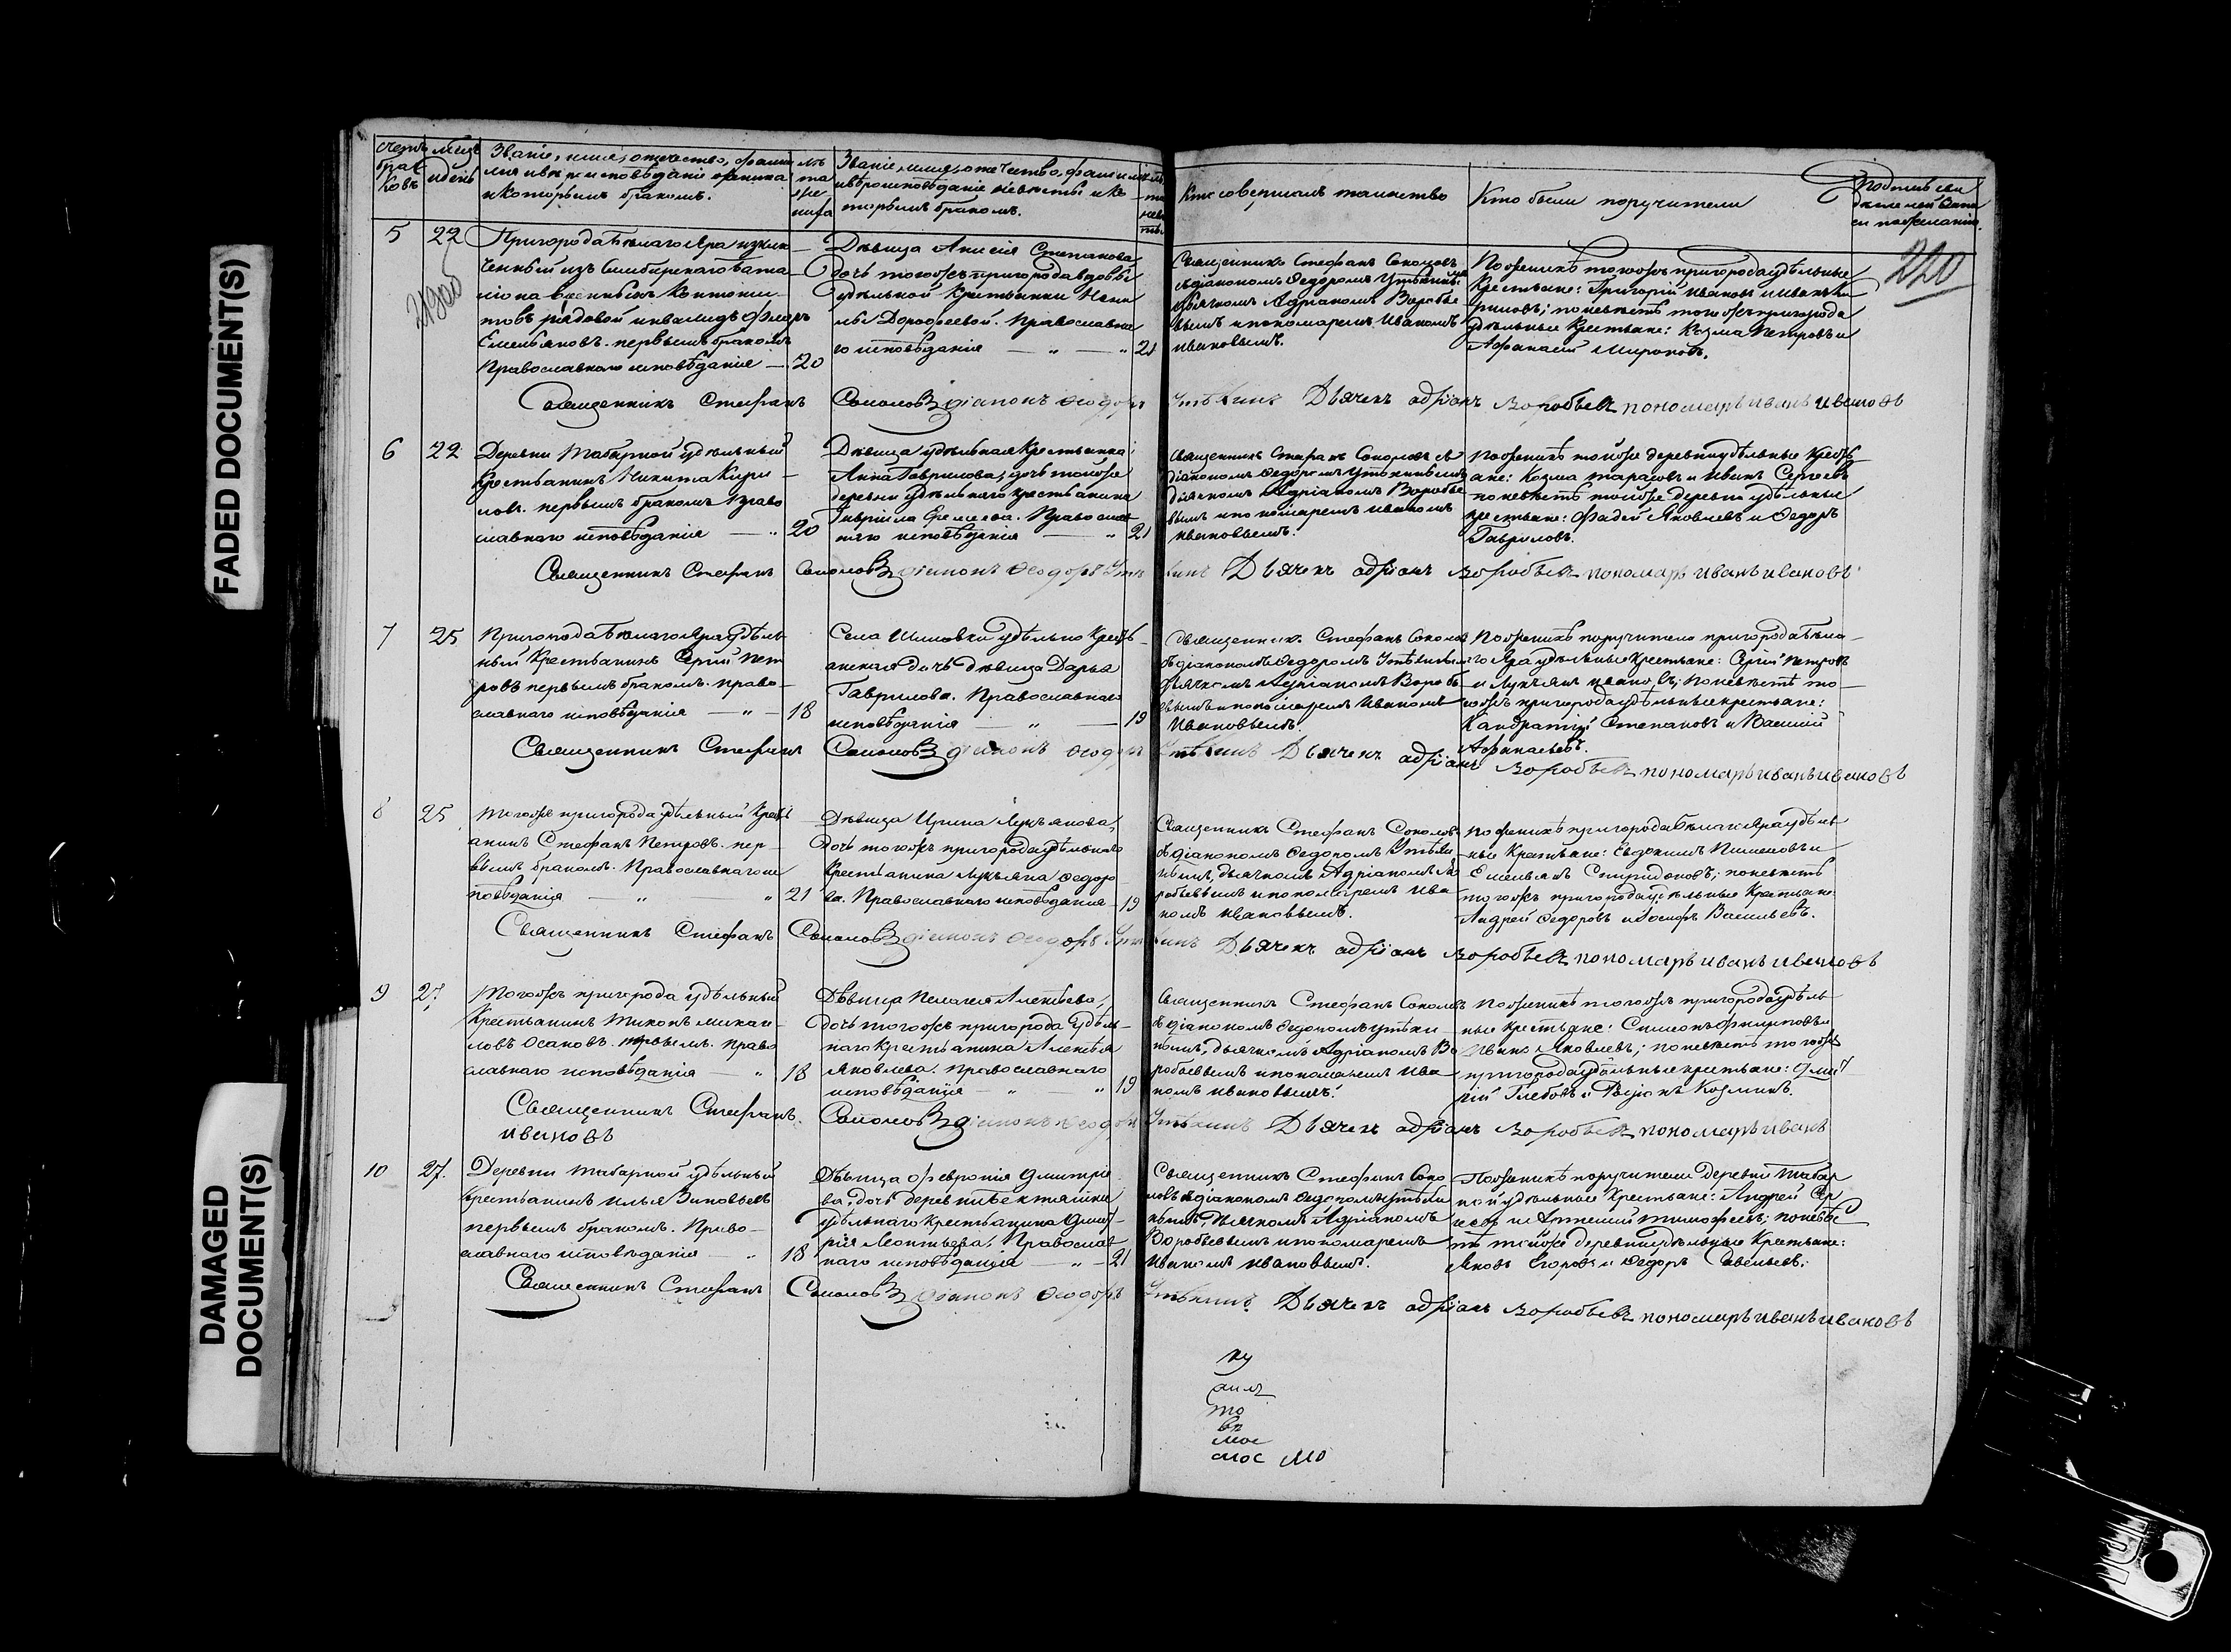 FADED DOCUMENT(S)
DAMAGED
DOCUMENT(S)
счетъ браковъ
мѣсяцъ и день
Званіе, имя, отчество, фами
лія и вѣроисповѣданіе жениха
и которымъ бракомъ.
лѣта жениха
Званіе, имя, отчество, фамилія
и вѣроисповѣданіе невѣсты и ко
торымъ бракомъ.
Кто совершалъ таинство
Кто были поручители
220
5
22
Пригорода Бѣлаго Яра
ченный изъ Симбирскаго бата
ліона военныхъ кантони
товъ рядовой инвалидъ
Емельяновъ. первымъ бракомъ
Православнаго исповѣданія
20
Дѣвица Анисія Степанова
дочь тогоже пригорода вдовы
удѣльной крестьянки
Дорофеевой. Православна
го исповѣданія
21
Священникъ Стефанъ Соколовъ
съ діакономъ Ѳедоромъ Утѣхинымъ
дьячкомъ Адріаномъ Воробье
вымъ и пономаремъ Иваномъ
Ивановымъ.
По женихѣ тогожъ пригорода удѣльные
крестьяне: Григорій Ивановъ и Иванъ Ки
риловъ; по невѣстѣ тогоже пригорода
удѣльные крестьяне: Козма Петровъ и
Афанасій Мироновъ.
Священникъ Стефанъ Соколовъ діаконъ Ѳеодоръ Утѣхинъ Дьячекъ адріанъ Воробьевъ пономарь иванъ ивановъ
6
22
Деревни Табарной удѣльный
Крестьянинъ Никита Кири
ловъ. первымъ бракомъ Право
славнаго исповѣданія
20
Дѣвица удѣльная крестьянка
Анна Гаврилова, дочь тойже
деревни удѣльнаго крестьянина
Гавріила Православ
наго исповѣданія
21
Священникъ Стефанъ Соколовъ съ
діакономъ Ѳедоромъ Утѣхинымъ
дьячкомъ Адріаномъ Воробье
вымъ и пономаремъ Иваномъ
Ивановымъ.
По женихѣ тойже деревни удѣльные крестъ
яне: Козма Тарасовъ и Иванъ Сергеевъ
по невѣстѣ тойже деревни удѣльные
крестьяне: Фадей Яковлевъ и Ѳедоръ
Гавриловъ.
Священникъ Стефанъ Соколовъ діаконъ Ѳеодоръ Утѣхинъ Дьячекъ адріанъ Воробьевъ пономарь иванъ ивановъ
7
25
Пригорода Бѣлаго Яра удѣль
ный Крестьянинъ Сергій Пет
ровъ первымъ бракомъ. право
славнаго исповѣданія
18
Села Шиловки удѣльно Кресть
янская дочь дѣвица Дарья
Гаврилова. Православнаго
исповѣданія
19
Священникъ Стефанъ Соколовъ
съ діакономъ Ѳедоромъ Утѣхинымъ
дьячкомъ Адріаномъ Воробь
евымъ и пономаремъ Иваномъ
Ивановымъ.
По женихѣ поручители пригорода Бѣла
го Яра удѣльные крестьяне: Сергій Петровъ
и Лукъянъ Ивановъ; по невѣстѣ то
гожъ пригорода удѣльные крестьяне:
Кандратій Степановъ и Василій
Афанасьевъ.
Священникъ Стефанъ Соколовъ діаконъ Ѳеодоръ Утѣхинъ Дьячекъ адріанъ Воробьевъ пономарь иванъ ивановъ
8
25
Тогоже пригорода удѣльный кресть
янинъ Стефанъ Петровъ. пер
вымъ бракомъ. Православнаго ис
повѣданія
21
Дѣвица Ирина Лукъянова,
дочь тогожъ пригорода удѣльнаго
крестьянина Лукъяна Ѳедоро
ва. Православнаго исповѣданія
19
Священникъ Стефанъ Соколовъ
съ діакономъ Ѳедоромъ Утѣхи
нымъ, дьячкомъ Адріаномъ Во
робьевымъ и пономаремъ Ива
номъ Ивановымъ.
По женихѣ пригорода Бѣлаго Яра удѣль
ные Крестьяне: Евдокимъ Пименовъ и
Емельянъ Спиридоновъ; по невѣстѣ
тогожъ пригорода удѣльные Крестьяне
Андрей Ѳедоровъ и Іосифъ Васильевъ.
Священникъ Стефанъ Соколовъ діаконъ Ѳеодоръ Утѣхинъ Дьячекъ адріанъ Воробьевъ пономарь иванъ ивановъ
9
27
Тогожъ пригорода удѣльный
Крестьянинъ Тихонъ Михаи
ловъ Осановъ. первымъ. право
славнаго исповѣданія
18
Дѣвица Пелагея Алексѣева,
дочь тогожъ пригорода удѣль
наго Крестьянина Алексѣя
Яковлева. православнаго
исповѣданія
19
Священникъ Стефанъ Соколовъ
съ діакономъ Ѳедоромъ Утѣхи
нымъ, дьячкомъ Адріаномъ Во
робьевымъ и пономаремъ Ива
номъ Ивановымъ.
По женихѣ тогожъ пригорода удѣль
ные крестьяне: Симеонъ Филиповъ и
Иванъ Яковлевъ; по невѣстѣ тогожъ
пригорода удѣльные крестьяне: Дмит
рій Глебовъ и Козминъ.
Священникъ Стефанъ Соколовъ діаконъ Ѳеодоръ Утѣхинъ Дьячекъ адріанъ Воробьевъ пономарь иванъ
ивановъ
10
27.
Деревни Табарной удѣльный
крестьянинъ Илья Зиновьевъ
первымъ бракомъ. Право
славнаго исповѣданія
18
Дѣвица Февронія Дмитріе
ва, дочь деревни
удѣльнаго крестьянина Дмит
рія Леонтьева, Православ
наго исповѣданія
21
Священникъ Стефанъ Соко
ловъ съ діакономъ Ѳедоромъ Утѣхи
нымъ дьячкомъ Адріаномъ
Воробьевымъ и пономаремъ
Иваномъ Ивановымъ.
По женихѣ поручители деревни Табар
ной удѣльные Крестьяне: Андрей
и Артемій Тимофеевъ; по невѣс
тѣ тойже деревни удѣльные Крестьяне:
Яковъ Егоровъ и Ѳедоръ Савельевъ.
Священникъ Стефанъ Соколовъ діаконъ Ѳеодоръ Утѣхинъ Дьячекъ адріанъ Воробьевъ пономарь иванъ ивановъ
ку
то
мос
мос мо